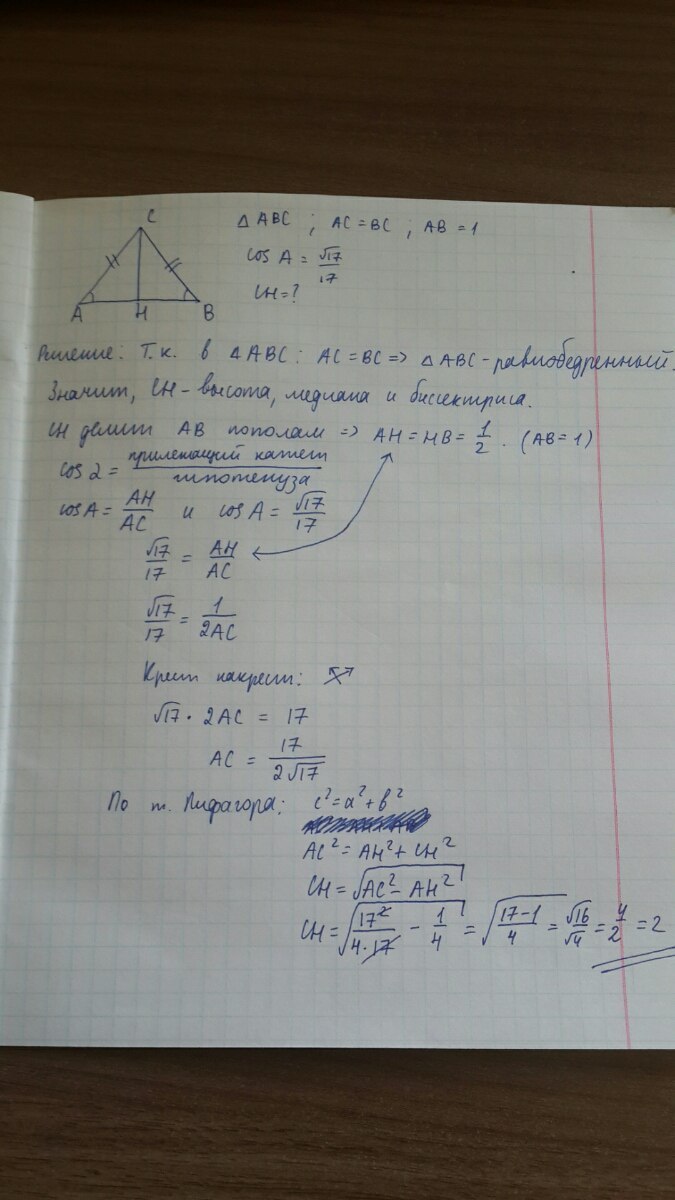 C
A H B
△ ABC ; AC = BC ; AB = 1
cos A = √17/17
CH = ?
Решение: Т.к. в △ ABC: AC = BC => △ ABC - равнобедренный.
Значит, CH - высота, медиана и биссектриса.
CH делит AB пополам => AH = HB = 1/2 . (AB = 1)
cos α = прилежащий катет/гипотенуза
cos A = AH/AC и cos A = √17/17
√17/17 = AH/AC
√17/17 = 1/2AC
Крест накрест:
√17 · 2AC = 17
AC = 17/2√17
По т. Пифагора: c² = a² + b²
AC² = AH² + CH²
CH = √(AC² - AH²)
CH = √(17²/4·17 - 1/4) = √((17-1)/4) = √16/√4 = 4/2 = 2